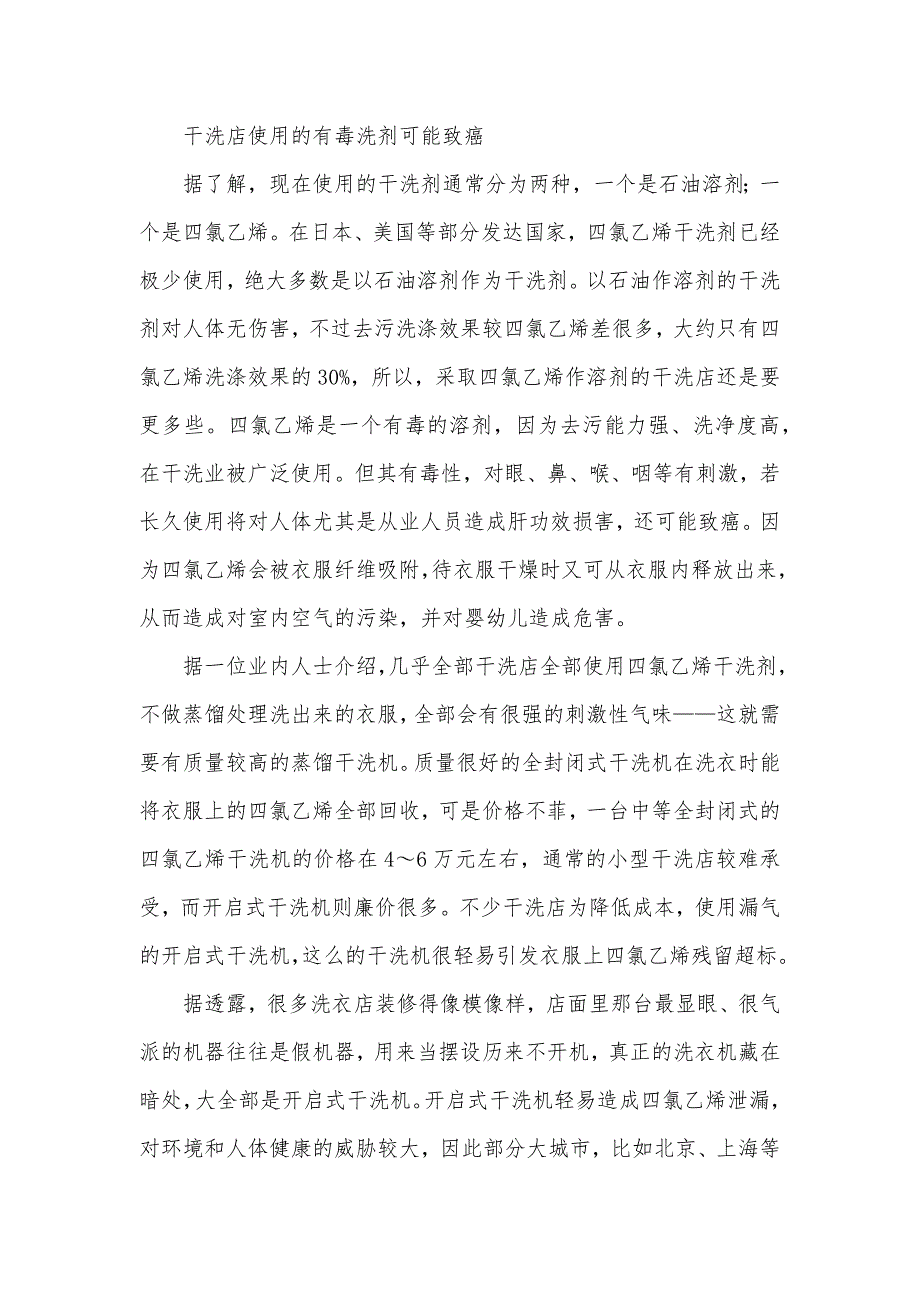 干洗店使用的有毒洗剂可能致癌
据了解，现在使用的干洗剂通常分为两种，一个是石油溶剂；一
个是四氯乙烯。在日本、美国等部分发达国家，四氯乙烯干洗剂已经
极少使用，绝大多数是以石油溶剂作为干洗剂。以石油作溶剂的干洗
剂对人体无伤害，不过去污洗涤效果较四氯乙烯差很多，大约只有四
氯乙烯洗涤效果的 30%，所以，采取四氯乙烯作溶剂的干洗店还是要
更多些。四氯乙烯是一个有毒的溶剂，因为去污能力强、洗净度高，
在干洗业被广泛使用。但其有毒性，对眼、鼻、喉、咽等有刺激，若
长久使用将对人体尤其是从业人员造成肝功效损害，还可能致癌。因
为四氯乙烯会被衣服纤维吸附，待衣服干燥时又可从衣服内释放出来，
从而造成对室内空气的污染，并对婴幼儿造成危害。
据一位业内人士介绍，几乎全部干洗店全部使用四氯乙烯干洗剂，
不做蒸馏处理洗出来的衣服，全部会有很强的刺激性气味——这就需
要有质量较高的蒸馏干洗机。质量很好的全封闭式干洗机在洗衣时能
将衣服上的四氯乙烯全部回收，可是价格不菲，一台中等全封闭式的
四氯乙烯干洗机的价格在 4～6 万元左右，通常的小型干洗店较难承
受，而开启式干洗机则廉价很多。不少干洗店为降低成本，使用漏气
的开启式干洗机，这么的干洗机很轻易引发衣服上四氯乙烯残留超标。
据透露，很多洗衣店装修得像模像样，店面里那台最显眼、很气
派的机器往往是假机器，用来当摆设历来不开机，真正的洗衣机藏在
暗处，大全部是开启式干洗机。开启式干洗机轻易造成四氯乙烯泄漏，
对环境和人体健康的威胁较大，因此部分大城市，比如北京、上海等